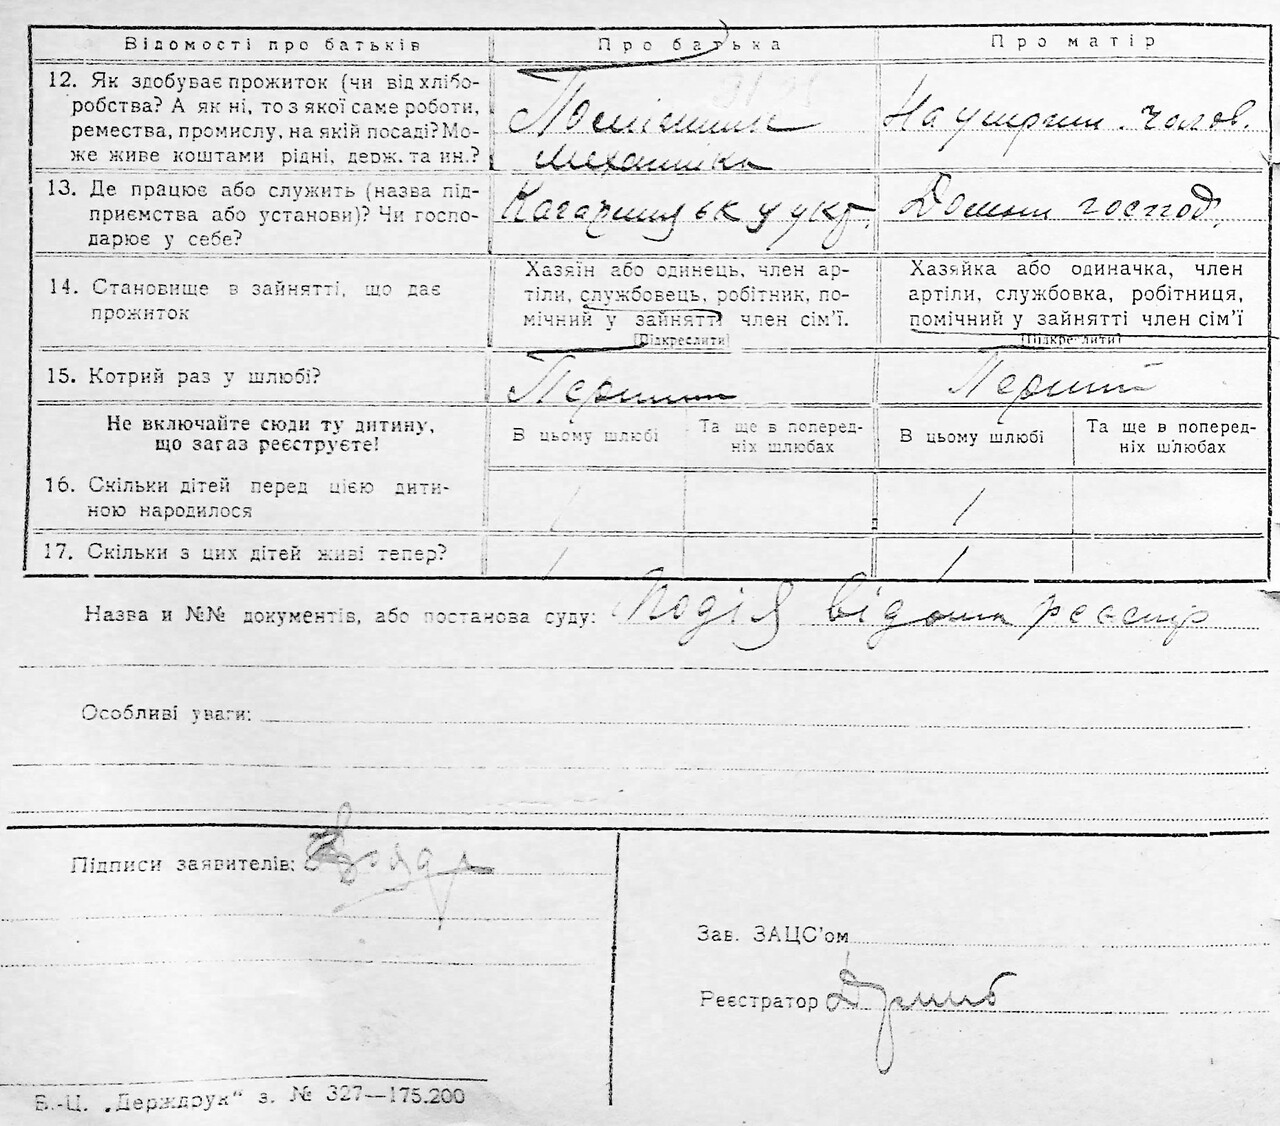 Відомості про батьків Про батька Про матір
12. Як здобуває прожиток (чи від хлібо-
робства? А як ні, то з якої саме роботи,
ремества, промислу, на якій посаді? Мо-
же живе коштами рідні, держ. та ин.?
Помішник
механіка
На утрим. чолов.
13. Де працює або служить (назва під-
приємства або установи)? Чи госпо-
дарює у себе?
Домаш господ.
14. Становище в зайнятті, що дає
прожиток
Хазяїн або одинець, член ар-
тіли, службовець, робітник, по-
мічний у зайнятті член сім'ї.
[Підкреслити]
Хазяйка або одиначка, член
артіли, службовка, робітниця,
помічний у зайнятті член сім'ї
[Підкреслити]
15. Котрий раз у шлюбі? Перший Перший
Не включайте сюди ту дитину,
що загаз реєструєте!
В цьому шлюбі
Та ще в поперед-
ніх шлюбах
В цьому шлюбі
Та ще в поперед-
ніх шлюбах
16. Скільки дітей перед цією дити-
ною народилося
1 1
17. Скільки з цих дітей живі тепер? 1 1
Назва и №№ документів, або постанова суду: Подія відома реєстр
Особливі уваги:
Підписи заявителів:
Зав. ЗАЦС'ом
Реєстратор
В.-Ц. „Держдрук" з. № 327—175.200